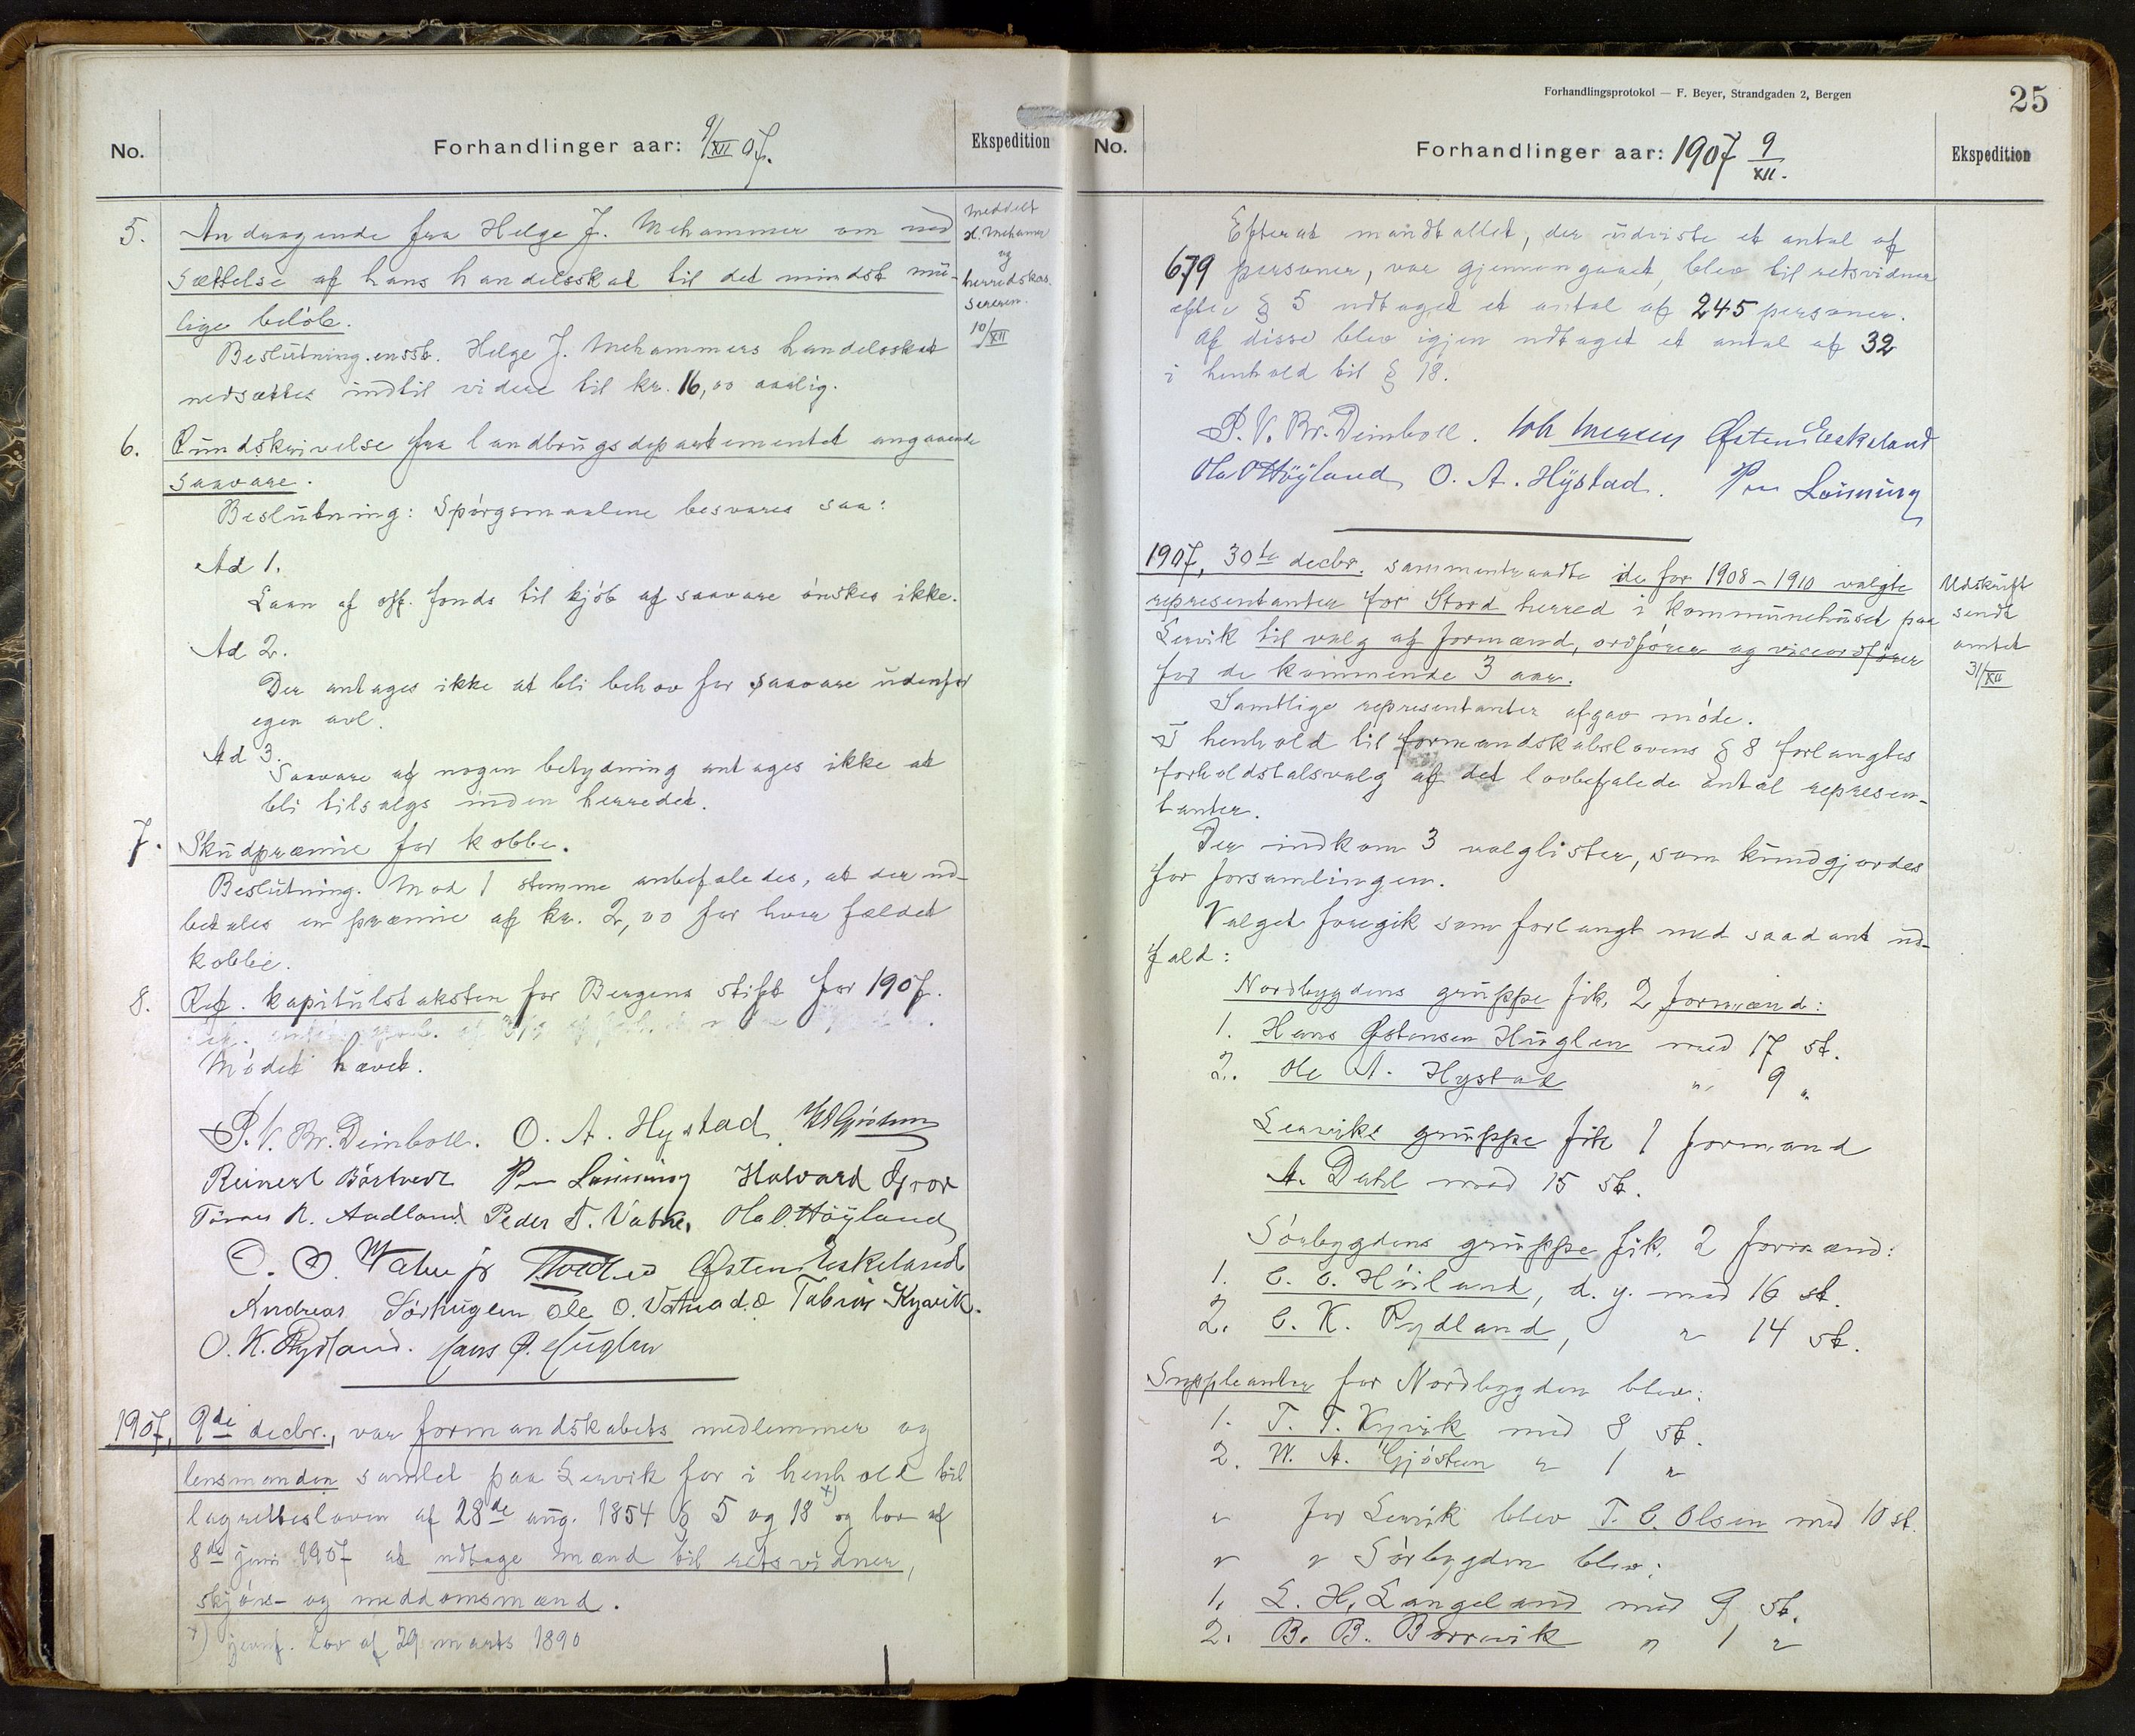 No.
Forhandlinger aar: 9/XII 07.
Ekspedition
5. Andragende fra Helge J. Mehammer om ned
sættelse af hans handelsskat til det mindst mu-
lige beløb.
Beslutning. enst. Helge J. Mehammers handelsskat
nedsættes indtil videre til kr. 16,00 aarlig.
Meddelt
H. Mehamer
og
herredskas
sereren.
10/XII
6. Rundskrivelse fra landbrugsdepartementet angaaende
saavare.
Beslutning: Spørgsmaalene besvares saa:
Ad 1.
Laan af off. fonds til kjøb af saavare ønskes ikke.
Ad 2.
Der antages ikke at bli behov for saavare udenfor
egen avl.
Ad 3.
Saavare af nogen betydning antages ikke at
bli tilsalgs inden herredet.
7. Skudpræmie for kobbe.
Beslutning. Mod 1 stemme anbefaledes, at der ud-
betales en præmie af kr. 2,00 for hver fældet
kobbe.
8. Ref. kapitulstaksten for Bergens stift for 1907.
Mødet hævet.
P. V. Br. Deinboll. O. A. Hystad
Reinert Børtvedt Per Lønning Halvard
Tørres N. Aadland Peder T. Vatne, Ola O. Høyland
O. O. Vatne jr Østen Eskeland
Andreas Sørhuglen Ole O. Vatna d.æ Tobias Kyvik.
O. K. Rydland. Hans Ø. Huglen
1907, 9de decbr., var formandskabets medlemmer og
lensmanden samlet paa Lervik for i henhold til
lagrettesloven af 28de aug. 1854 § 5 og 18 x) og lov af
8de juni 1907 at udtage mænd til retsvidner,
skjøns- og meddomsmænd.
x) jevnf. Lov af 29 marts 1890
Forhandlingsprotokol — F. Beyer, Strandgaden 2, Bergen
25
No.
Forhandlinger aar: 1907 9/XII.
Ekspedition
Efterat mandtallet, der udviste et antal af
679 personer, var gjennemgaaet, blev til retsvidner
efter § 5 udtaget et antal af 245 personer.
Af disse blev igjen udtaget et antal af 32
i henhold til § 18.
P. V. Br. Deinboll. Østen Eskeland
Ola O Høyland O. A. Hystad. Per Lønning
1907, 30te decbr. sammentraadte de for 1908–1910 valgte
representanter for Stord herred i kommunehuset paa
Lervik til valg af formænd, ordfører og viceordfører
for de kommende 3 aar.
Udskrift
sendt
amtet
31/XII
Samtlige representanter afgav møde.
I henhold til formandskabslovens § 8 forlangtes
forholdstalsvalg af det lovbefalede antal represen-
tanter.
Der indkom 3 valglister, som kundgjordes
for forsamlingen.
Valget foregik som forlangt med saadant ud-
fald:
Nordbygdens gruppe fik 2 formænd:
1. Hans Østensen Huglen med 17 st.
2. Ole A. Hystad " 9 "
Lerviks gruppe fik 1 formand
A. Dahl med 15 st.
Sørbygdens gruppe fik 2 formænd:
1. O. O. Høiland, d. y. med 16 st.
2. O. K. Rydland, " 14 st.
Suppleanter for Nordbygden blev:
1. T. T. Kyvik med 8 st.
2. W. A. Gjøsteen " 1 "
" for Lervik blev T. O. Olsen med 10 st.
" " Sørbygden blev:
1. L. H. Langeland med 9 st.
2. B. B. Borrevik " 1 "